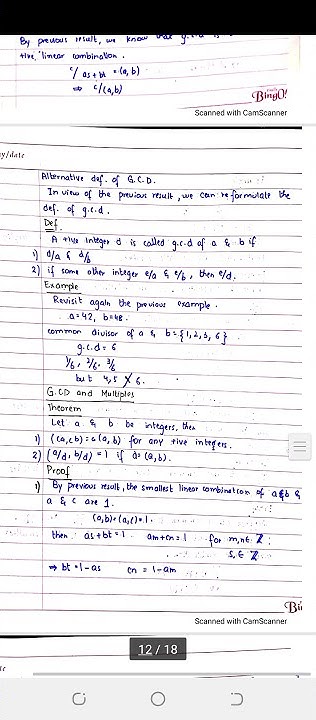 By previous result, we know that g.c.d is
+ive, linear combination.
c/ as+bt = (a, b)
⇒ c/(a,b)
BingO!
Scanned with CamScanner
ay/date
Alternative def. of G.C.D.
In view of the previous result, we can re formulate the
def. of g.c.d.
Def.
A +ive Integer d is called g.c.d of a & b if
1) d/a & d/b
2) if some other integer c/a & c/b, then c/d.
Example
Revisit again the previous example.
a=42, b=48.
common divisor of a & b = {1, 2, 3, 6}
g.c.d = 6
1/6, 2/6, 3/6
but 4,5 ∤ 6.
G.CD and Multiples
Theorem
Let a & b be integers, then
1) (ca, cb) = c(a, b) for any +ive integers.
2) (a/d, b/d) = 1 if d = (a, b).
Proof
1) By previous result, the smallest linear combination of a&b &
a & c are 1.
(a,b) = (a,c) = 1.
then as+bt = 1 am+cn = 1 for m,n ∈ Z
s,t ∈ Z
⇒ bt = 1-as cn = 1-am
Bi
Scanned with CamScanner
12 / 18
te